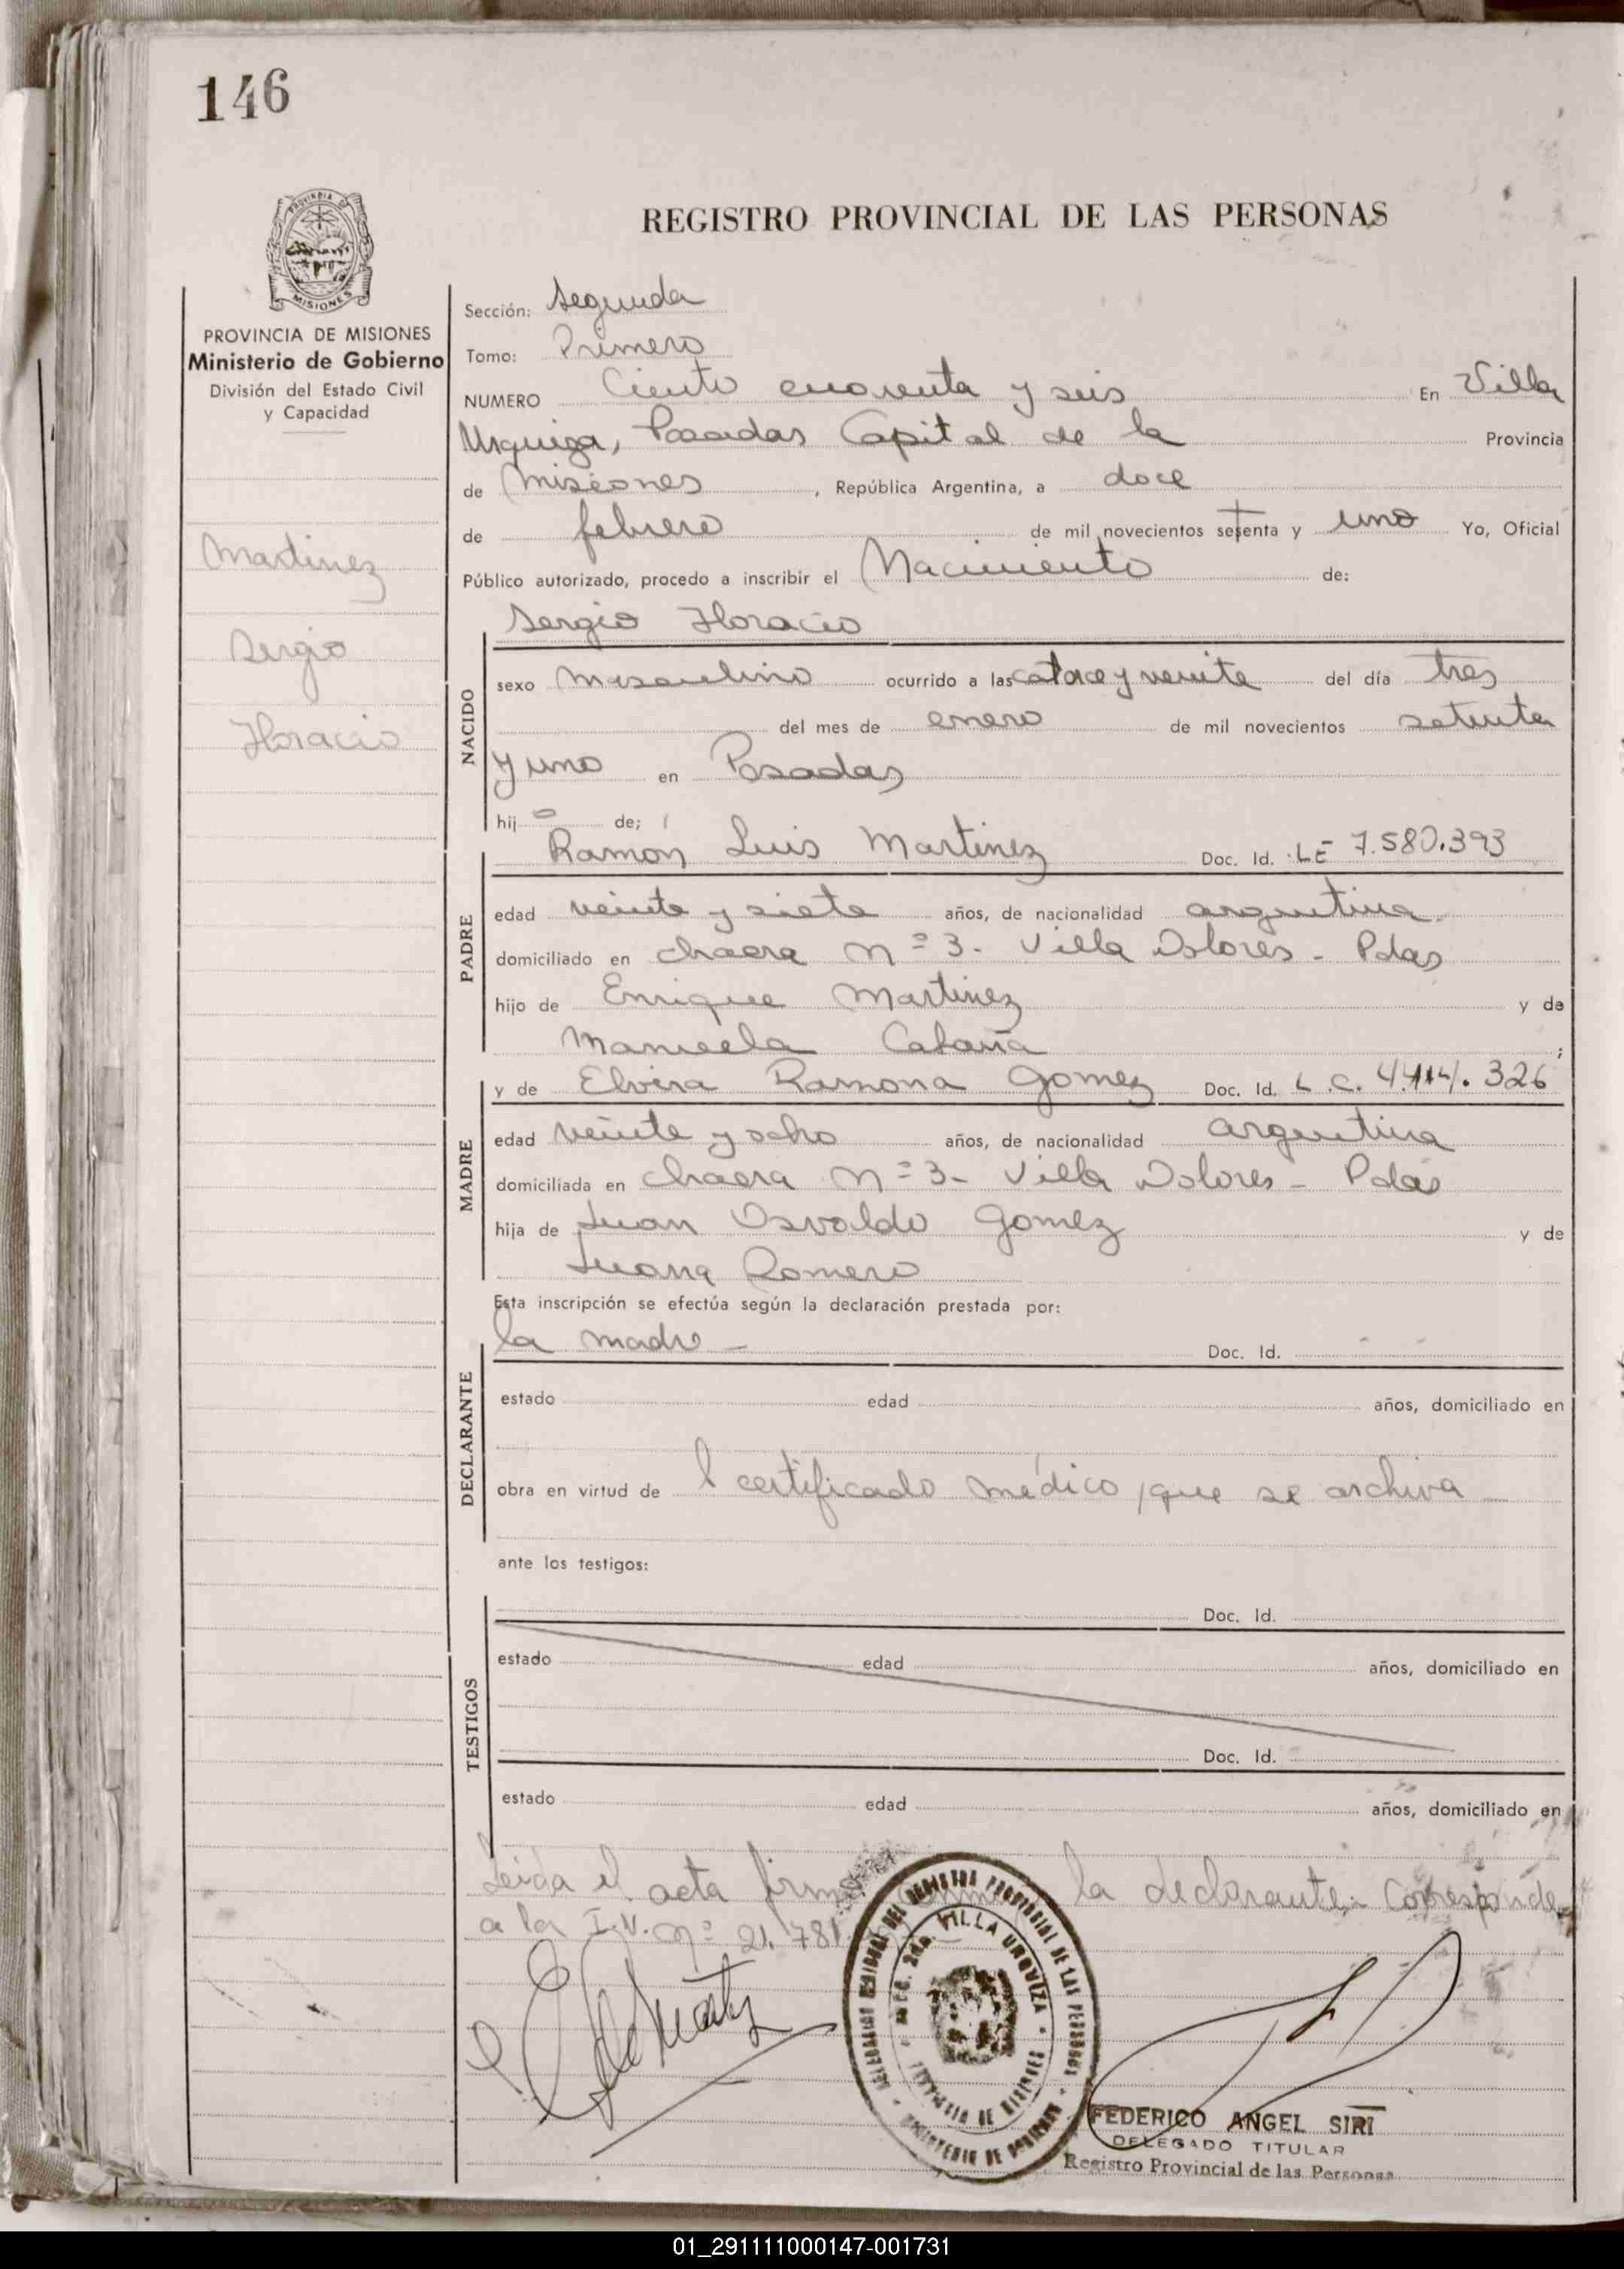 146
PROVINCIA DE
MISIONES
REGISTRO PROVINCIAL DE LAS PERSONAS
PROVINCIA DE MISIONES
Ministerio de Gobierno
División del Estado Civil
y Capacidad
Martinez
Sergio
Horacio
Sección: Segunda
Tomo: Primero
NUMERO Ciento cuarenta y seis En Villa
Urquiza, Posadas Capital de la Provincia
de Misiones, República Argentina, a doce
de febrero de mil novecientos setenta y uno Yo, Oficial
Público autorizado, procedo a inscribir el Nacimiento de:
Sergio Horacio
NACIDO
sexo masculino ocurrido a las catorce y veinte del día tres
del mes de enero de mil novecientos setenta
y uno en Posadas
hijo de;
Ramon Luis Martinez Doc. Id. LE 7.580.393
PADRE
edad veinte y siete años, de nacionalidad argentina.
domiciliado en chacra nº 3- Villa Dolores - Pdas
hijo de Enrique Martinez y de
Manuela Cataña;
y de Elvira Ramona Gomez Doc. Id. L.C. 326
MADRE
edad veinte y ocho años, de nacionalidad argentina
domiciliada en chacra nº 3- Villa Dolores - Pdas
hija de Juan Osvaldo Gomez y de
Juana Romero
Esta inscripción se efectúa según la declaración prestada por:
la madre - Doc. Id.
DECLARANTE
estado edad años, domiciliado en
obra en virtud de l certificado médico, que se archiva
ante los testigos:
Doc. Id.
TESTIGOS
estado edad años, domiciliado en
Doc. Id.
estado edad años, domiciliado en
Leida el acta firma la declarante. Corresponde
a la I.N. nº 21.781.
DELEGACION REGIONAL DEL REGISTRO PROVINCIAL DE LAS PERSONAS
SECC. 2da. VILLA URQUIZA
PROVINCIA DE MISIONES
MINISTERIO DE GOBIERNO
FEDERICO ANGEL SIRI
DELEGADO TITULAR
Registro Provincial de las Personas
01_291111000147-001731